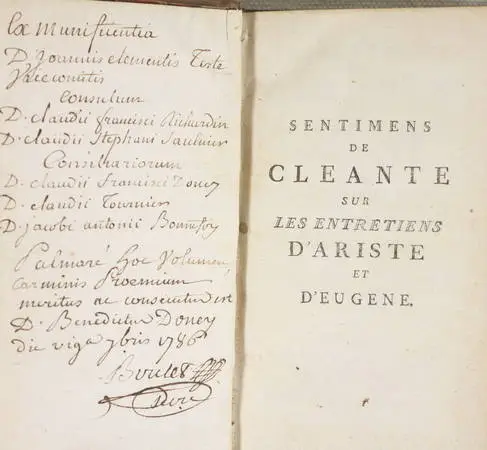 Ex Munificentia
D. joannis clementis Teste
Vicecomitis
Consulum
D. claudii francisci Richardin
D. claudii Stephani Saulnier
Consiliariorum
D. claudii francisci Doney
D. claudii Tournier
D. jacobi antonii Bonnefoy
Palmaré hoc Volumen,
carminis Proemium
meritus ac consecutus est
D. Benedictus Doney
die 7bris 1786
SENTIMENS
DE
CLEANTE
SUR
LES ENTRETIENS
D'ARISTE
ET
D'EUGENE.